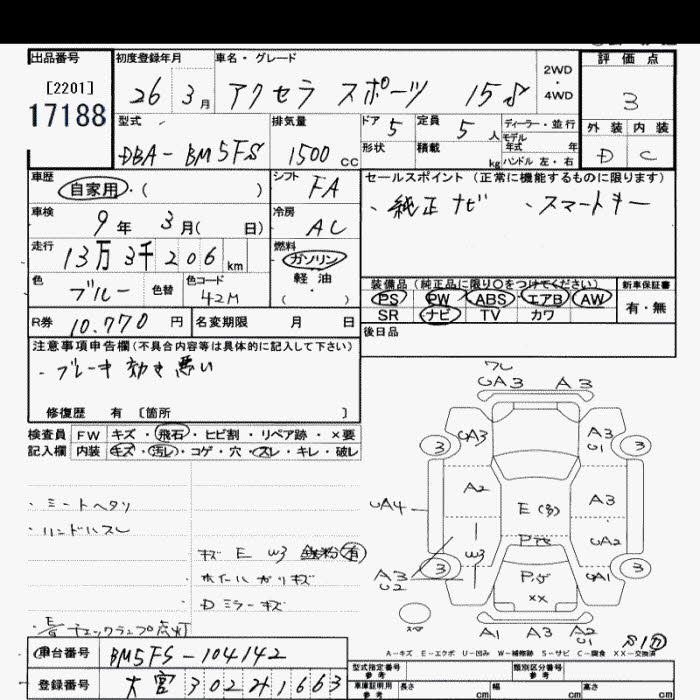 出品番号 初度登録年月 車名・グレード 2WD・4WD 評価点
[2201]
17188 26 3月 アクセラ スポーツ 15S 3
型式 排気量 ドア 定員 ディーラー・並行 外装 内装
DBA-BM5FS 1500 cc 5 5 人 モデル年式 年 D C
形状 積載 kg ハンドル 左・右
車歴 シフト セールスポイント (正常に機能するものに限ります)
自家用・( ) FA ・純正ナビ ・スマートキー
車検 9年 3月( 日) 冷房 AC
走行 13万3千206km 燃料 ガソリン
軽油
( )
色 ブルー 色替 色コード 42M
装備品 (純正品に限り〇をつけてください) 新車保証書
PS PW ABS エアB AW 有・無
SR ナビ TV カワ
R券 10.770 円 名変期限 月 日 後日品
注意事項申告欄(不具合内容等は具体的に記入して下さい)
・ブレーキ効き悪い
修復歴 有 〔箇所 〕
検査員 FW キズ・飛石・ヒビ割・リペア跡・×要
記入欄 内装 キズ・汚レ・コゲ・穴・スレ・キレ・破レ
・シートヘタリ
・ハンドルスレ
キズ E W3 鉄粉有
・ホイールガリキズ
・Dミラーキズ
チェックランプ点灯
UA3 A3
3 UA3 A3 U1 3
A2 A3
UA4 E(多)
W3 UA2
3 A3 U2 UA1 3
××
A1 A3 A2 U1
A-キズ E-エクボ U-凹み W-補修跡 S-サビ C-腐食 XX-交換済
車台番号 BM5FS-104142
登録番号 大宮302ス1663
型式指定番号 参考 類別区分番号 参考
車庫証明用 参考 長さ cm 幅 cm 高さ cm